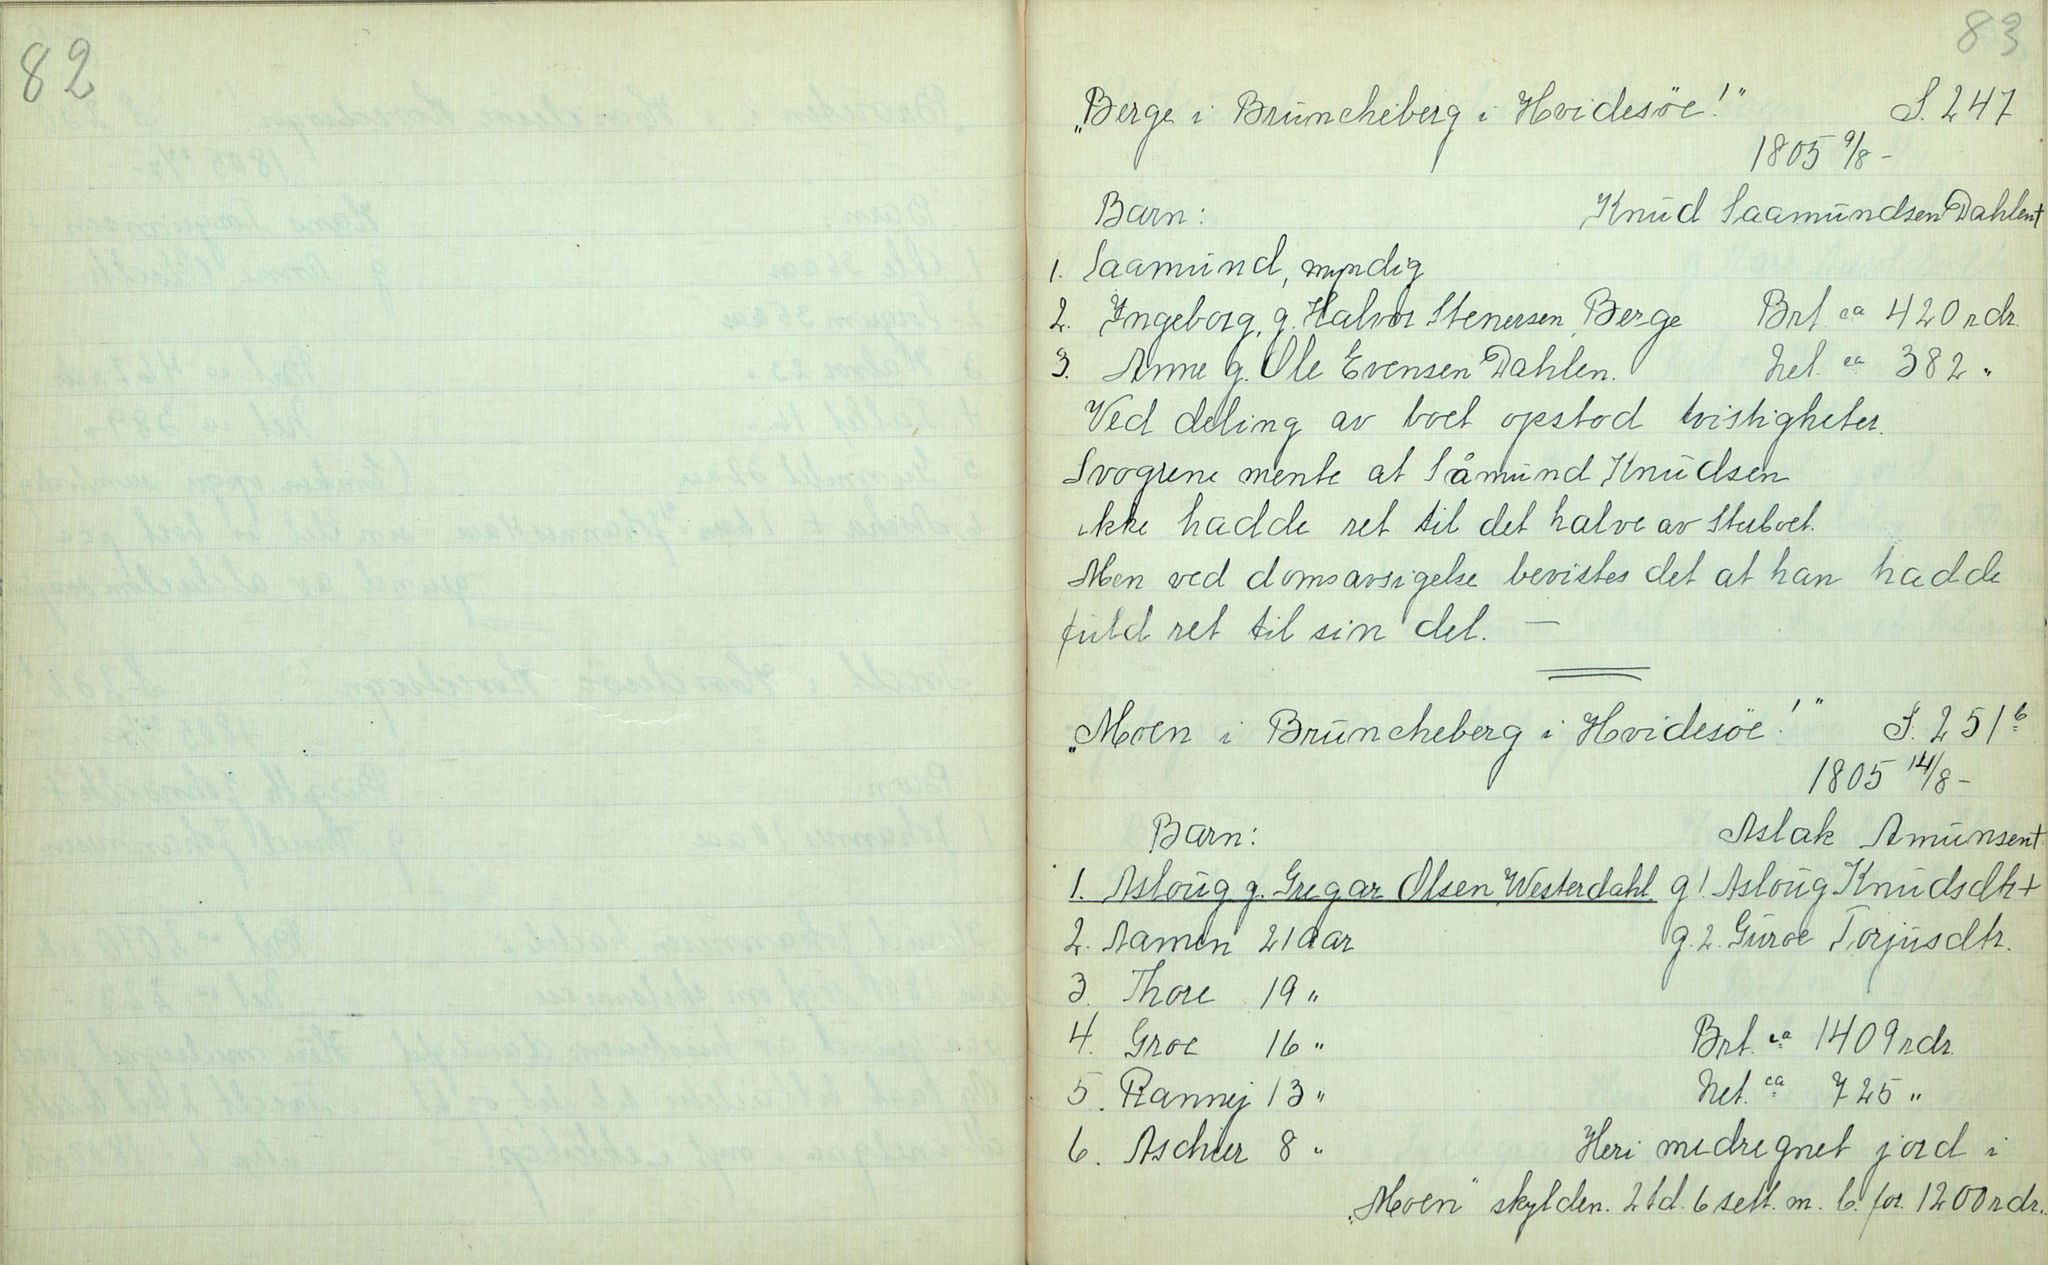 82
83
„Berge i Brüncheberg i Hvidesöe!" S. 247
1805 9/8 -
Barn: Knüd Saamündsen Dahlen +
1. Saamünd, myndig
2. Ingeborg, g. Halvor Stenersen Berge Brt. ca 420 rdr.
3. Anne g. Ole Evensen Dahlen. Net. ca 382 „
Ved deling av boet opstod tvistigheter.
Svogrene mente at Såmünd Knüdsen
ikke hadde ret til det halve av Sterboet.
Men ved domsavsigelse bevistes det at han hadde
fuld ret til sin del. —
„Moen i Brüncheberg i Hvidesöe!" S. 251 b
1805 14/8 -
Barn: Aslak Amünsen +
1. Asloüg g. Gregar Olsen Westerdahl g! Asloüg Knüdsdtr +
2. Aamen 21 aar g. 2. Güroe Torjüsdtr.
3. Thore 19 „
4. Groe 16 „ Brt. ca 1409 rdr.
5. Rannej 13 „ Net. ca 725 „
6. Aschier 8 „ Heri medregnet jord i
„Moen" skylden. 2 td. 6 sett. m. b. for. 1200 rdr.